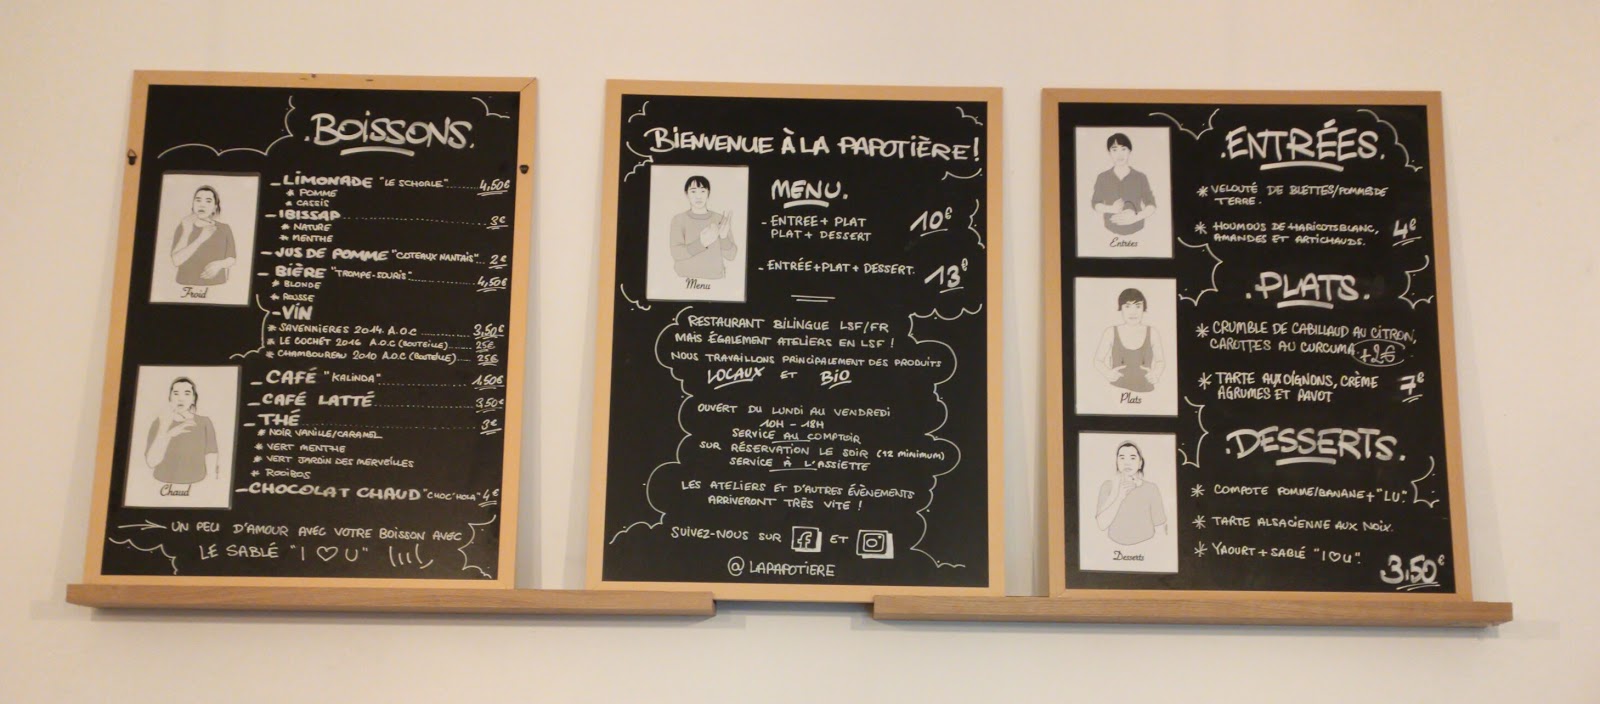 .BOISSONS.
_LIMONADE "LE SCHORLE" ........ 4,50€
* POMME
* CASSIS
- IBISSAP ........ 3€
* NATURE
* MENTHE
- JUS DE POMME "COTEAUX NANTAIS"... 2€
- BIÈRE "TROMPE-SOURIS" ........ 4,50€
* BLONDE
* ROUSSE
- VIN
* SAVENNIERES 2014 A.O.C ........ 3,50€
* LE COCHET 2016 A.O.C (BOUTEILLE) ..... 25€
* CHAMBOUREAU 2010 A.O.C (BOUTEILLE) ..... 25€
- CAFÉ "KALINDA" ........ 1,50€
- CAFÉ LATTÉ ........ 3,50€
- THÉ ........ 3€
* NOIR VANILLE/CARAMEL
* VERT MENTHE
* VERT JARDIN DES MERVEILLES
* ROOIBOS
- CHOCOLAT CHAUD "CHOC'HOLA" 4€
UN PEU D'AMOUR AVEC VOTRE BOISSON AVEC
LE SABLÉ "I ♡ U"
Froid
Chaud
BIENVENUE À LA PAPOTIÈRE!
MENU.
- ENTREE + PLAT
PLAT + DESSERT 10€
- ENTRÉE+PLAT+DESSERT. 13€
Menu
RESTAURANT BILINGUE LSF/FR
MAIS ÉGALEMENT ATELIERS EN LSF !
NOUS TRAVAILLONS PRINCIPALEMENT DES PRODUITS
LOCAUX ET BIO
OUVERT DU LUNDI AU VENDREDI
10H - 18H
SERVICE AU COMPTOIR
SUR RÉSERVATION LE SOIR (12 MINIMUM)
SERVICE À L'ASSIETTE
LES ATELIERS ET D'AUTRES ÉVÈNEMENTS
ARRIVERONT TRÈS VITE !
SUIVEZ-NOUS SUR f ET
@LAPAPOTIERE
.ENTRÉES.
* VELOUTÉ DE BLETTES/POMMES DE
TERRE.
* HOUMOUS DE HARICOTS BLANC,
AMANDES ET ARTICHAUDS. 4€
Entrées
.PLATS.
* CRUMBLE DE CABILLAUD AU CITRON,
CAROTTES AU CURCUMA +2€
* TARTE AUX OIGNONS, CRÈME
AGRUMES ET PAVOT 7€
Plats
DESSERTS.
* COMPOTE POMME/BANANE + "LU".
* TARTE ALSACIENNE AUX NOIX.
* YAOURT + SABLÉ "I♡U".
3,50€
Desserts